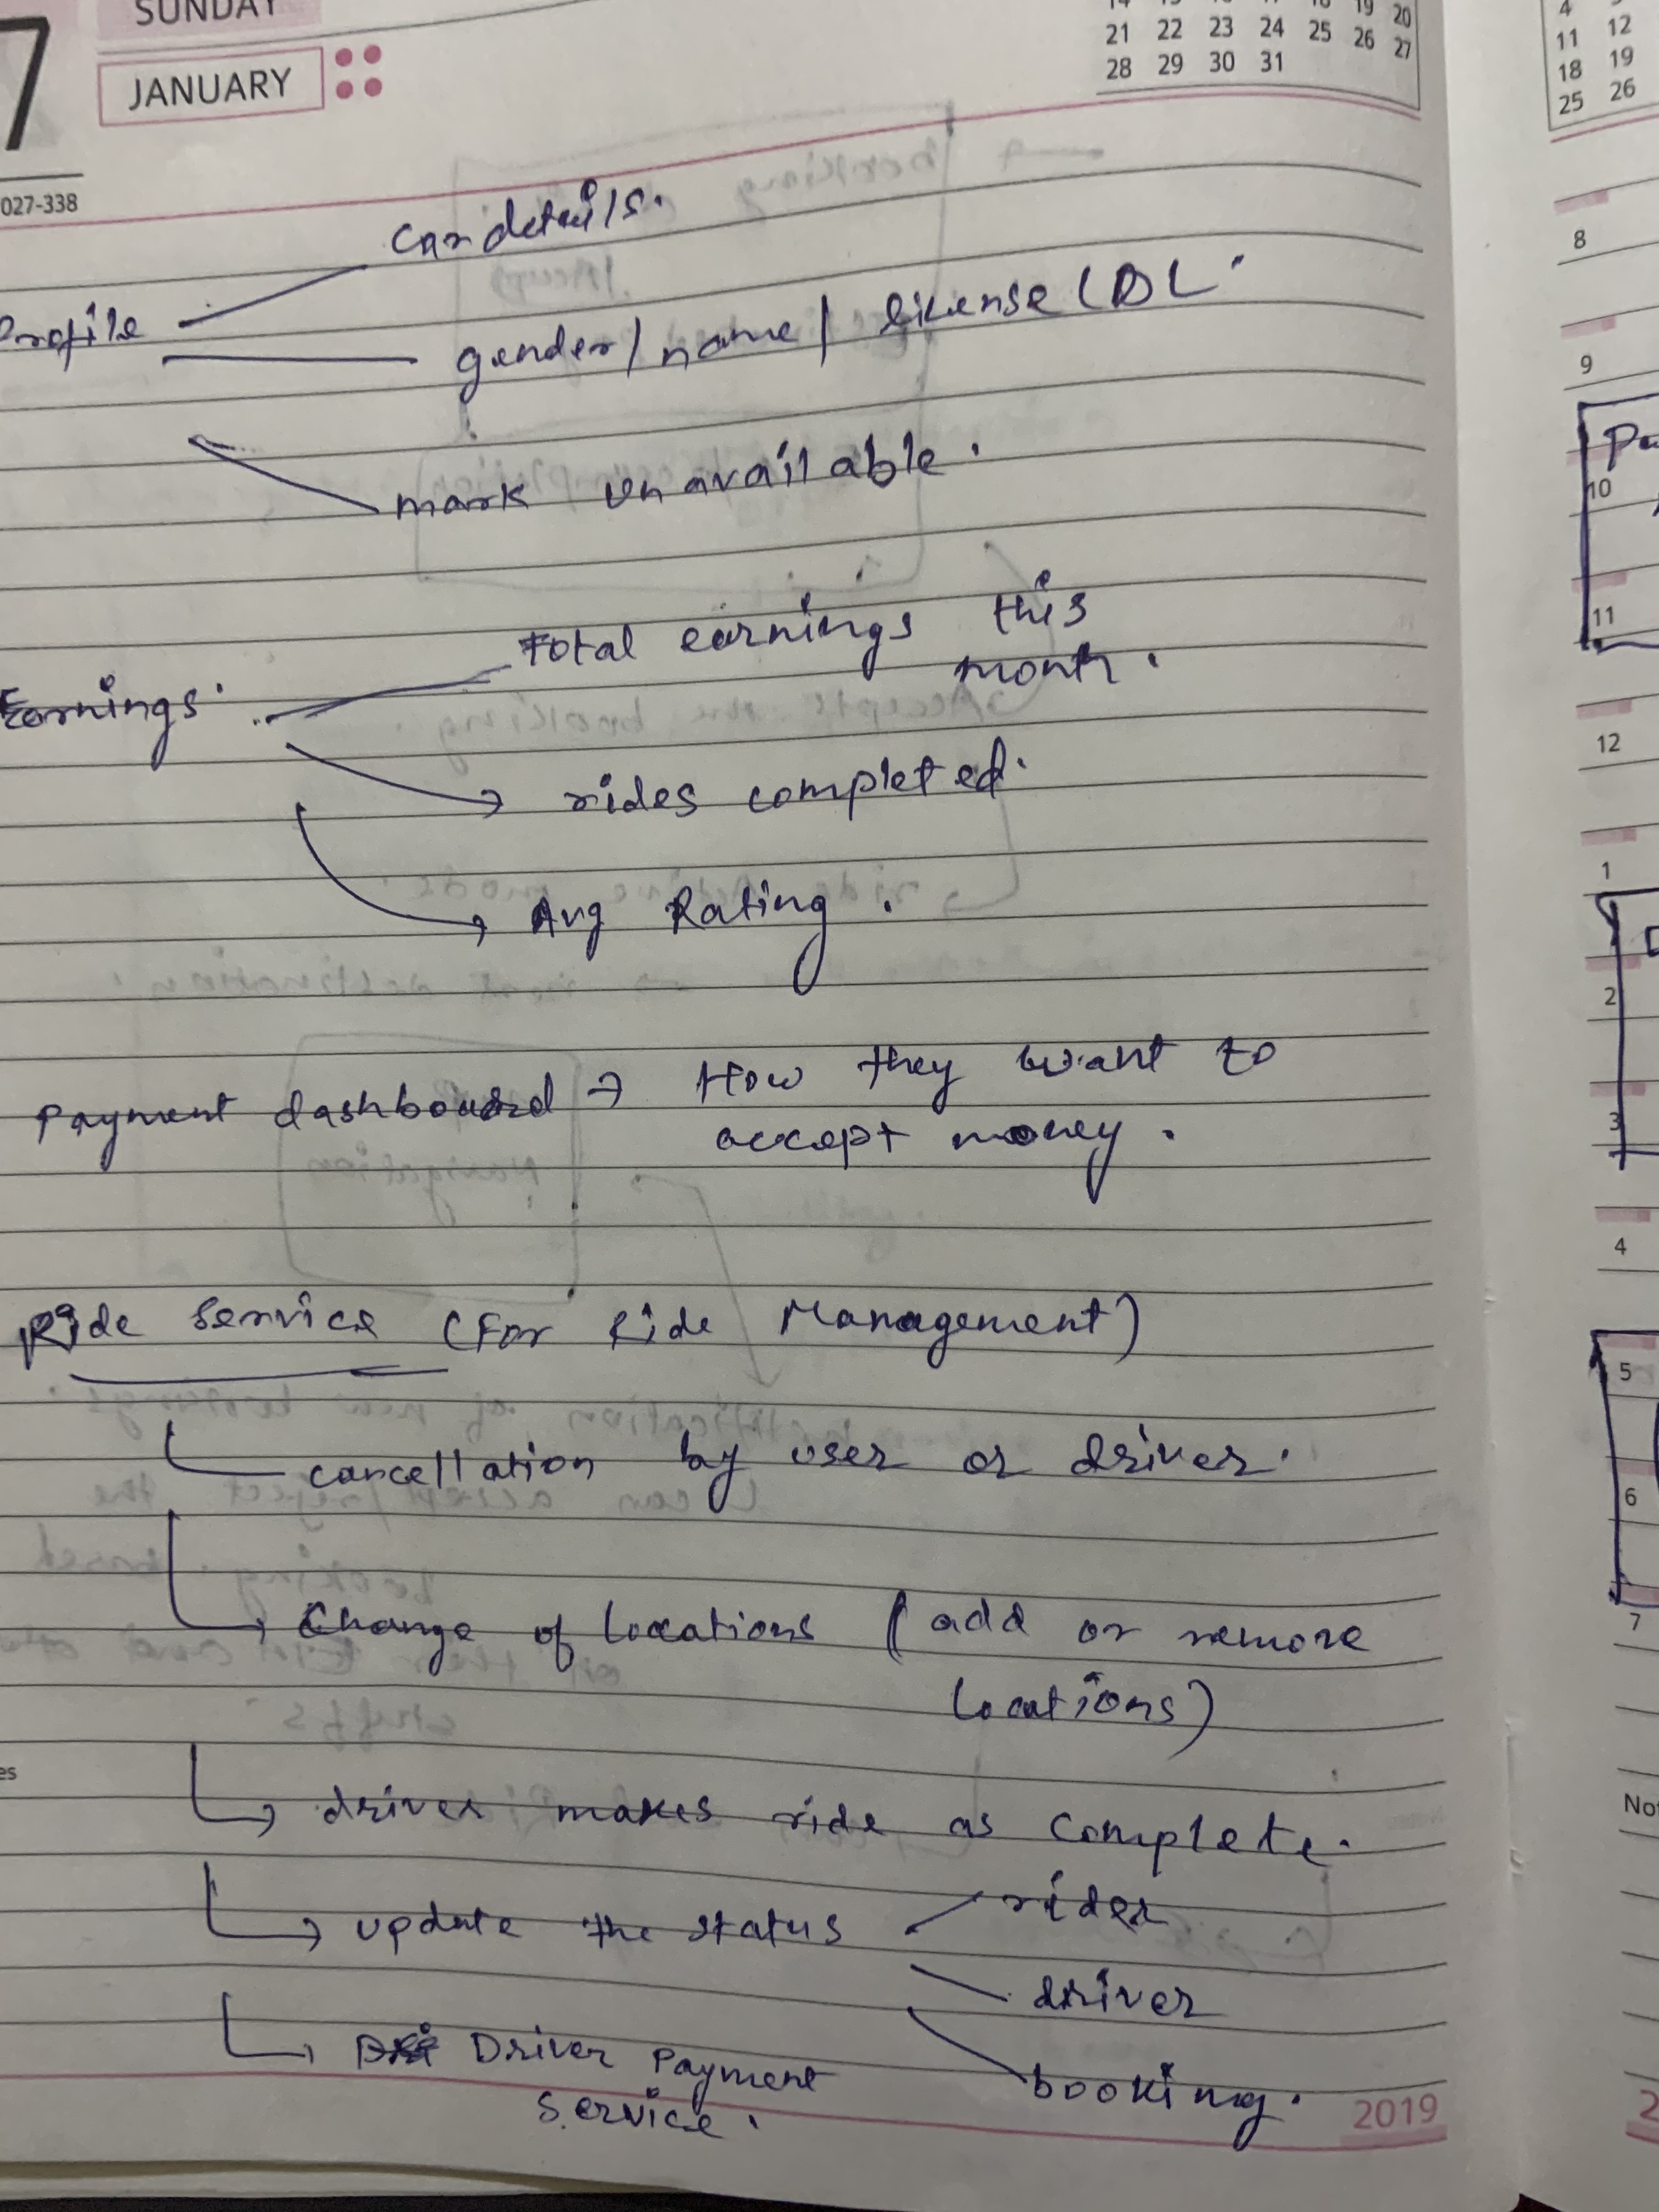 7
SUNDAY
JANUARY
027-338
14 19 20
21 22 23 24 25 26 27
28 29 30 31
4
11 12
18 19
25 26
car details.
Profile
gender/name/ likense (DL
mark unavailable.
Total earnings this
month.
Earnings
rides completed.
Avg Rating.
Payment dashboard → How they want to
accept money.
Ride Service (For Ride Management)
cancellation by user or driver.
Change of locations (add or remove
locations)
driver makes ride as complete.
update the status rider
driver
booking.
Driver Payment
Service.
2019
8
9
10
11
12
1
2
3
4
5
6
7